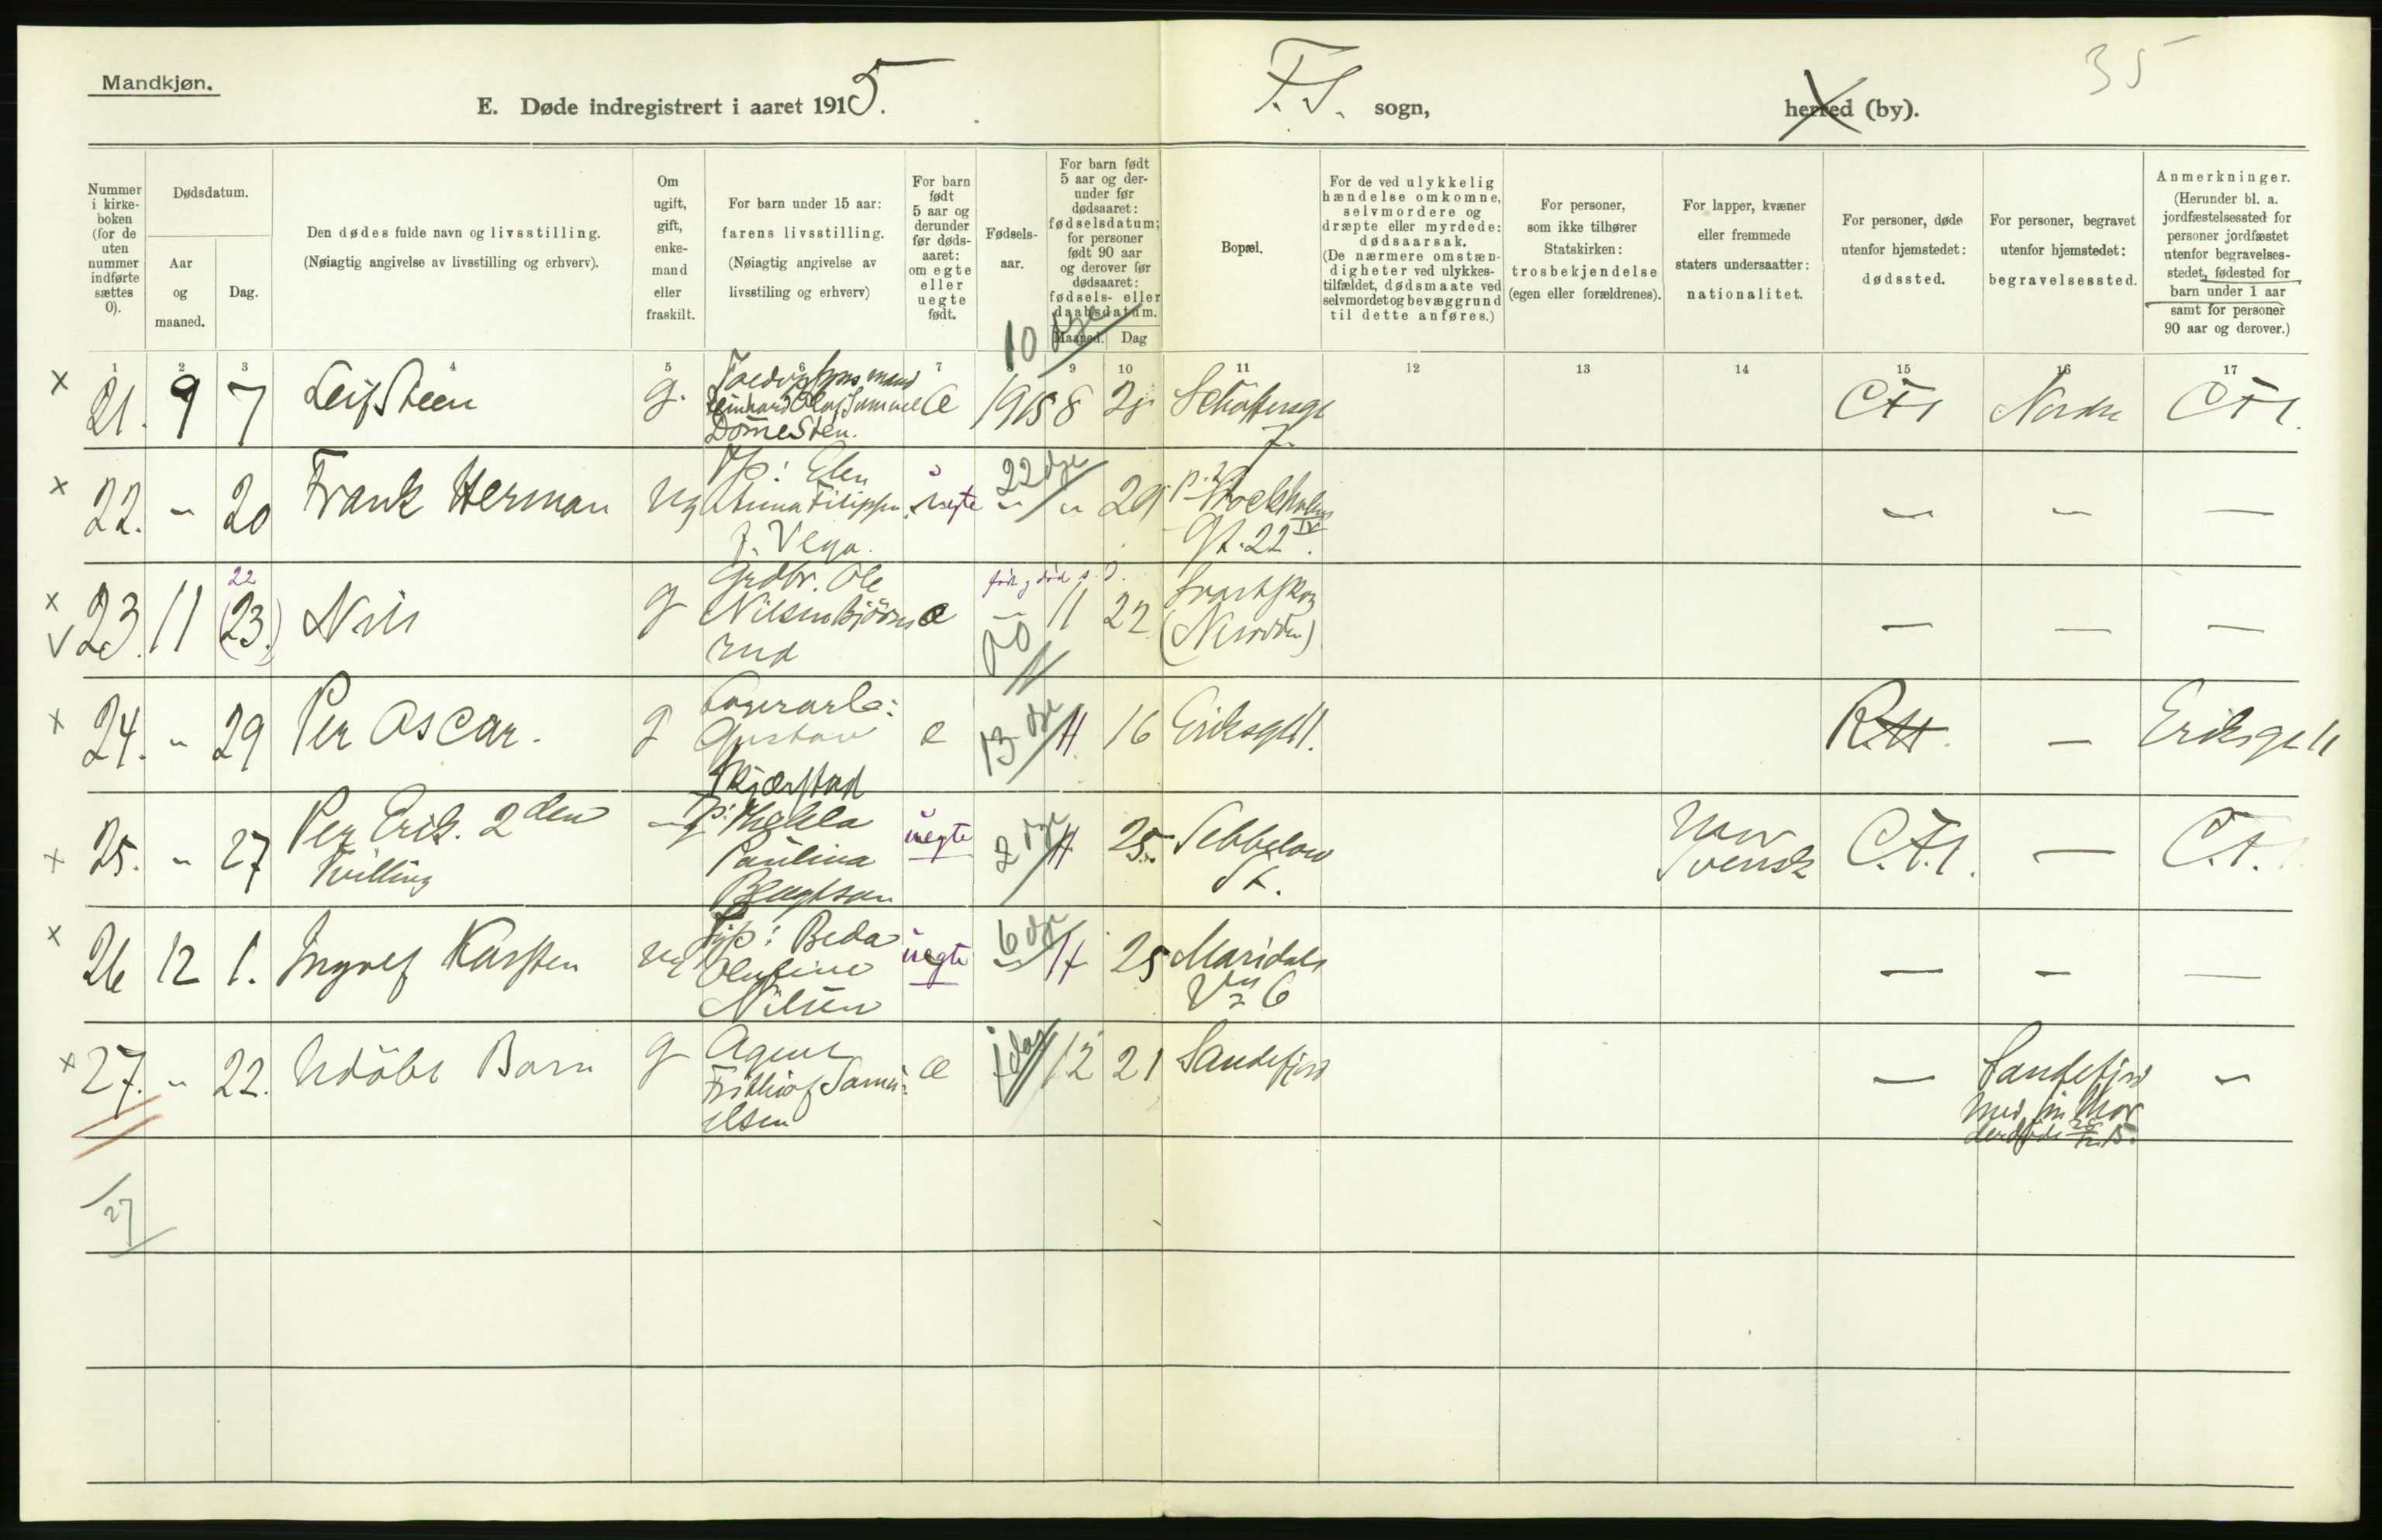 Mandkjøn.
35
E. Døde indregistrert i aaret 1915.
F. S. sogn,
herred (by).
Nummer i kirke-boken (for de uten nummer indførte sættes 0).
Dødsdatum.
Aar og maaned.
Dag.
Den dødes fulde navn og livsstilling.
(Nøiagtig angivelse av livsstilling og erhverv).
Om ugift, gift, enke-mand eller fraskilt.
For barn under 15 aar: farens livsstilling.
(Nøiagtig angivelse av livsstiling og erhverv)
For barn født 5 aar og derunder før døds-aaret: om egte eller uegte født.
Fødsels-aar.
For barn født 5 aar og der-under før dødsaaret: fødselsdatum; for personer født 90 aar og derover før dødsaaret: fødsels- eller daabsdatum.
Maaned.
Dag
Bopæl.
For de ved ulykkelig hændelse omkomne, selvmordere og dræpte eller myrdede: dødsaarsak.
(De nærmere omstæn-digheter ved ulykkes-tilfældet, dødsmaate ved selvmordet og bevæggrund til dette anføres.)
For personer, som ikke tilhører Statskirken: trosbekjendelse (egen eller forældrenes).
For lapper, kvæner eller fremmede staters undersaatter: nationalitet.
For personer, døde utenfor hjemstedet: dødssted.
For personer, begravet utenfor hjemstedet: begravelsessted.
Anmerkninger.
(Herunder bl. a. jordfæstelsessted for personer jordfæstet utenfor begravelses-stedet, fødested for barn under 1 aar samt for personer 90 aar og derover.)
1 2 3 4 5 6 7 9 10 11 12 13 14 15 16 17
x 21. 9 7 Leif Steen g. e 10 dge 1915 8 28 7 CFS Nordre CFS.
x 22. " 20 Frank Herman ug Elen Anna uegte 22 dge " " 29 Stockholms gt. 22 IV. — — —
J. Vega.
x v 23. 11 22 (23.) Nils g Grdbr. Ole Nilsen e " 11 22 (Nesodden) — — —
x 24. " 29 Per Oscar. g Gustav e 13 dge 11 16 Eriksgt 11. — Eriksgt 11
x 25. " 27 Per Erik. 2den Tvilling ug Paulina uegte 2 dge 11 25. Sebbelows St. Svensk C.F.S. — C.F.S.
x 26 12 1. Ingolf Karsten ug Beda Olufine Nilsen uegte 6 dge 11 25 Maridals Vn 6 — — —
x 27. " 22. Udøbt Barn g Agent Frithiof Samuelsen e 1 dag 12 21 Sandefjord — Sandefjord —
27